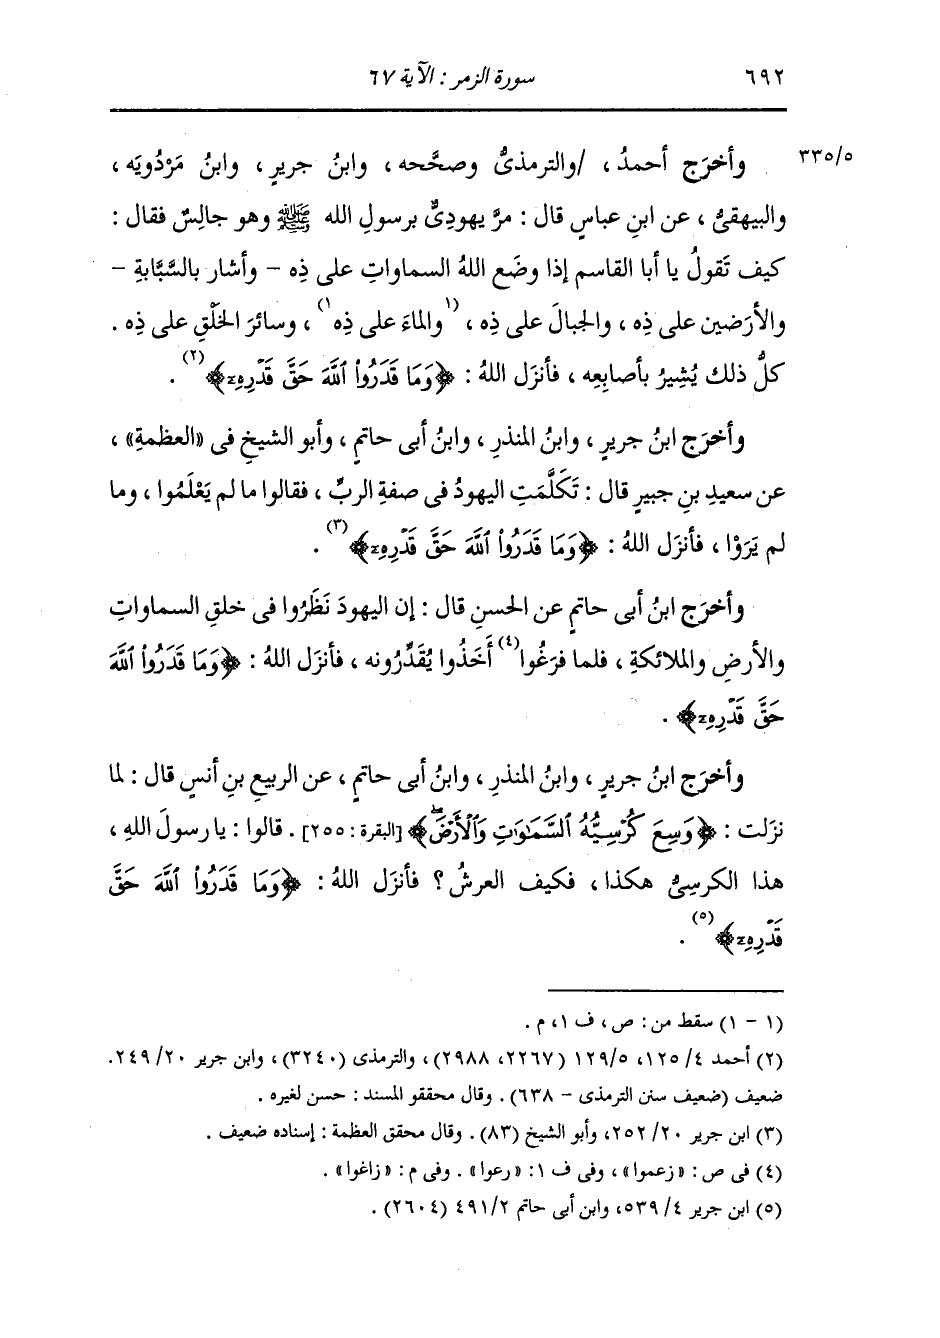 ٦٩٢ سورة الزمر : الآية ٦٧
٣٣٥/٥ وأخرَج أحمدُ ، /والترمذىُّ وصحَّحه ، وابنُ جريرٍ ، وابنُ مَرْدُويَه ،
والبيهقىُّ ، عن ابنِ عباسٍ قال : مرَّ يهودىٌّ برسولِ الله ﷺ وهو جالِسٌ فقال :
كيف تَقولُ يا أبا القاسم إذا وضَع اللهُ السماواتِ على ذِه – وأشار بالسَّبَّابةِ –
والأرَضين على ذِه ، والجبالَ على ذِه ، (١والماءَ على ذِه١) ، وسائرَ الخَلْقِ على ذِه .
كلُّ ذلك يُشِيرُ بأصابِعِه ، فأنزَل اللهُ : ﴿وَمَا قَدَرُواْ ٱللَّهَ حَقَّ قَدْرِهِۦ﴾(٢) .
وأخرَج ابنُ جريرٍ ، وابنُ المنذرِ ، وابنُ أبى حاتمٍ ، وأبو الشيخِ فى «العظمةِ» ،
عن سعيدِ بنِ جبيرٍ قال : تَكَلَّمَتِ اليهودُ فى صفةِ الربِّ ، فقالوا ما لم يَعْلَمُوا ، وما
لم يَرَوْا ، فأنزَل اللهُ : ﴿وَمَا قَدَرُواْ ٱللَّهَ حَقَّ قَدْرِهِۦ﴾(٣) .
وأخرَج ابنُ أبى حاتمٍ عن الحسنِ قال : إن اليهودَ نَظَرُوا فى خلقِ السماواتِ
والأرضِ والملائكةِ ، فلما فرَغُوا(٤) أَخَذُوا يُقَدِّرُونه ، فأنزَل اللهُ : ﴿وَمَا قَدَرُواْ ٱللَّهَ
حَقَّ قَدْرِهِۦ﴾ .
وأخرَج ابنُ جريرٍ ، وابنُ المنذرِ ، وابنُ أبى حاتمٍ ، عن الربيعِ بنِ أنسٍ قال : لما
نزَلت : ﴿وَسِعَ كُرْسِيُّهُ ٱلسَّمَٰوَٰتِ وَٱلْأَرْضَۖ﴾ [البقرة : ٢٥٥] . قالوا : يا رسولَ اللهِ ،
هذا الكرسىُّ هكذا ، فكيف العرشُ ؟ فأنزَل اللهُ : ﴿وَمَا قَدَرُواْ ٱللَّهَ حَقَّ
قَدْرِهِۦ﴾(٥) .
(١ – ١) سقط من : ص ، ف ١ ، م .
(٢) أحمد ٤/ ١٢٥، ١٢٩/٥ (٢٢٦٧، ٢٩٨٨) ، والترمذى (٣٢٤٠) ، وابن جرير ٢٠/ ٢٤٩.
ضعيف (ضعيف سنن الترمذى – ٦٣٨) . وقال محققو المسند : حسن لغيره .
(٣) ابن جرير ٢٠/ ٢٥٢، وأبو الشيخ (٨٣) . وقال محقق العظمة : إسناده ضعيف .
(٤) فى ص : «زعموا» ، وفى ف ١: «رعوا» . وفى م : «زاغوا» .
(٥) ابن جرير ٤/ ٥٣٩، وابن أبى حاتم ٤٩١/٢ (٢٦٠٤) .